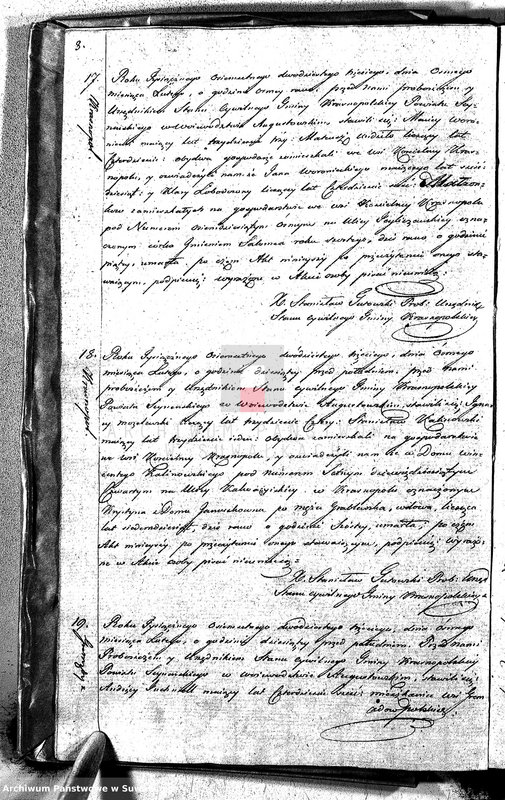 3.
17.
Krasnopol
Roku Tysiącznego Osiemsetnego dwudziestego trzeciego, dnia Osmego
miesiąca Lutego, o godzinie osmej rano, przed nami proboszczem y
Urzędnikiem Stanu Cywilnego Gminy Krasnopolskiej Powiatu Sey-
neńskiego w Wojewodztwie Augustowskim, stawili się: Maciey
maiący lat trzydzieści trzy: Mateusz liczący lat
Czterdzieści: obydwa gospodarze zamieszkali we wsi Kościelney Kras-
nopolu, y oswiadczyli nam że Jana Woronieckiego maiącego lat
y Klary Lobodzianny liczącey lat Czterdzieści Małżon-
kow zamieszkałych na gospodarstwie we wsi Kościelney Krasnopolu
pod Numerem osiemdziesiątym osmym na Ulicy ozna-
czonym: córka Imieniem Salomea roku, dziś rano o godzinie
piątey, umarła. po czym Akt ninieyszy po przeczytaniu onego sta-
waiącym, podpisaliśmy: wyrażone w Akcie osoby pisać nieumieią:
X. Stanisław Gutowski Prob: Urzędnik
Stanu Cywilnego Gminy Krasnopolskiey
18.
Krasnopol
Roku Tysiącznego Osiemsetnego dwudziestego trzeciego, dnia Osmego
miesiąca Lutego, o godzinie dziesiątey przed południem, przed nami
proboszczem y Urzędnikiem Stanu Cywilnego Gminy Krasnopolskiey
Powiatu Seyneńskiego w Wojewodztwie Augustowskim, stawili się; Igna-
cy liczący lat trzydzieści Cztery: Stanisław Kalinowski
maiący lat trzydzieści ieden: obydwa zamieszkali na gospodarstwie
we wsi Kościelney Krasnopolu, y oswiadczyli nam że w Domu Win-
centego Kalinowskiego pod numerem Setnym dziewięćdziesiątym
Czwartym na Ulicy Kalwaryiskiey w Krasnopolu oznaczonym
Krystyna z Domu Januszkowna po mężu Grablinska, wdowa, licząca
lat siedemdziesiąt dziś rano o godzinie Szostey, umarła; po czym
Akt ninieyszy, po przeczytaniu onego stawaiącym, podpisaliśmy: wyrażo-
ne w Akcie osoby pisać nieumieią:
X. Stanisław Gutowski Prob: Urzęd
Stanu Cywilnego Gminy Krasnopolskiey
19.
Roku Tysiącznego Osiemsetnego dwudziestego trzeciego, dnia osmego
miesiąca Lutego, o godzinie dziesiątey przed południem, Przed Nami
Proboszczem y Urzędnikiem Stanu Cywilnego Gminy Krasnopolskiey
Powiatu Seyneńskiego w Wojewodztwie Augustowskim, stawili się:
Andrzey maiący lat Czterdzieści mieszkaniec wsi
Archiwum Państwowe w Suwa